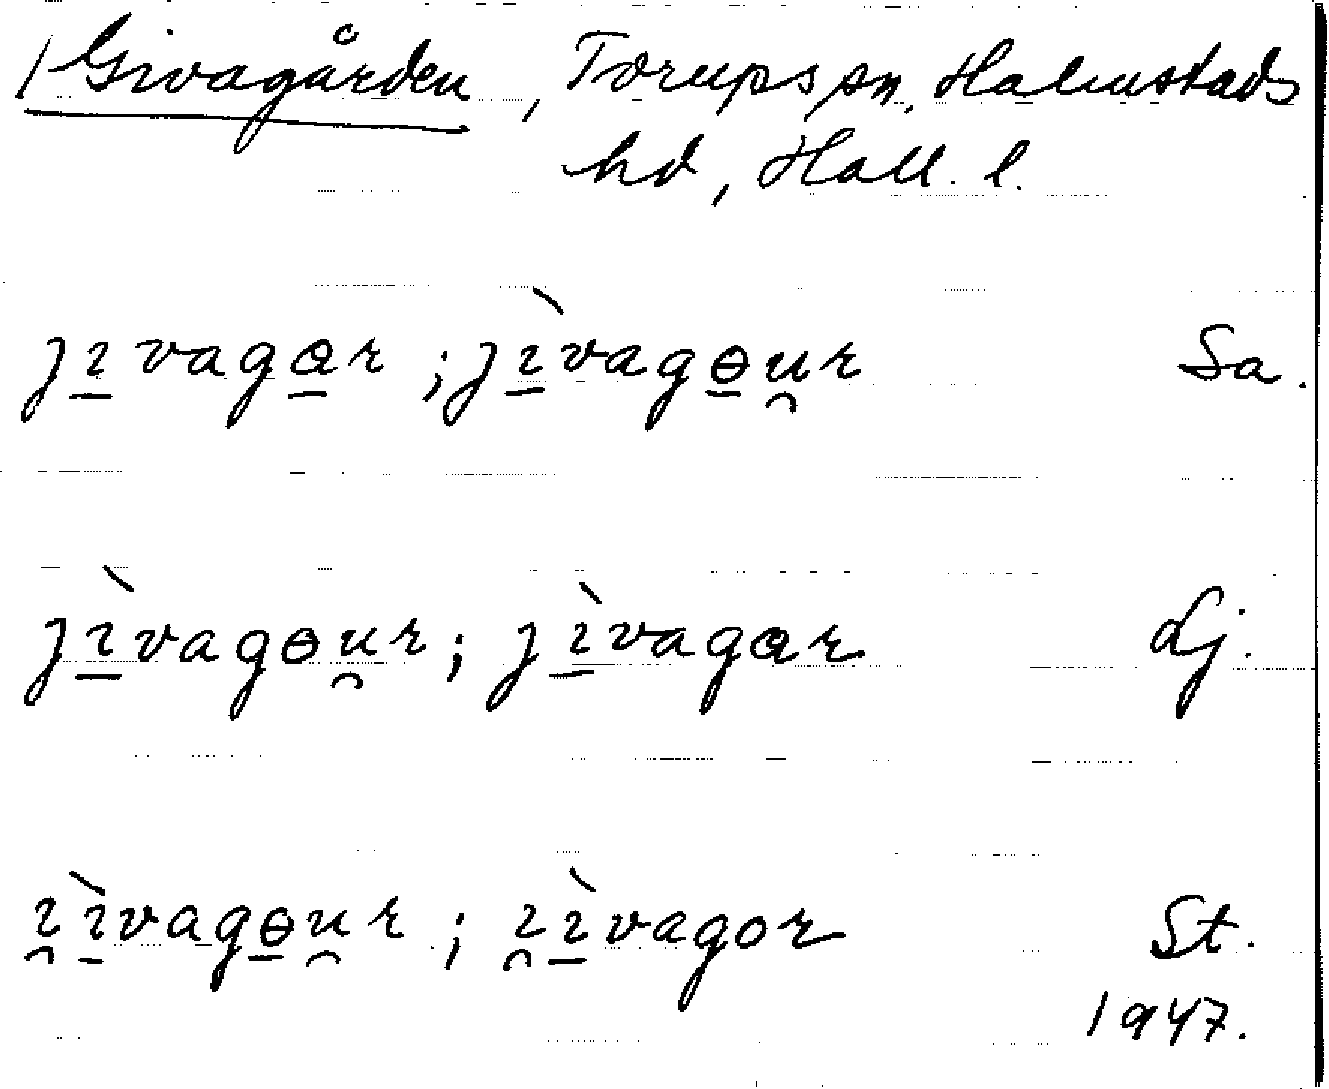 /Givagården, Torups sn, Halmstads
hd, Hall. l.
ȷı̱vaga̱r ; ȷı̱̀vagɵ̱u̯r Sa.
ȷı̱̀vagɵu̯r; ȷı̱̀vagar Lj.
ı̯ı̱̀vagɵ̱u̯r ; ı̯ı̱̀vagor St.
1947.